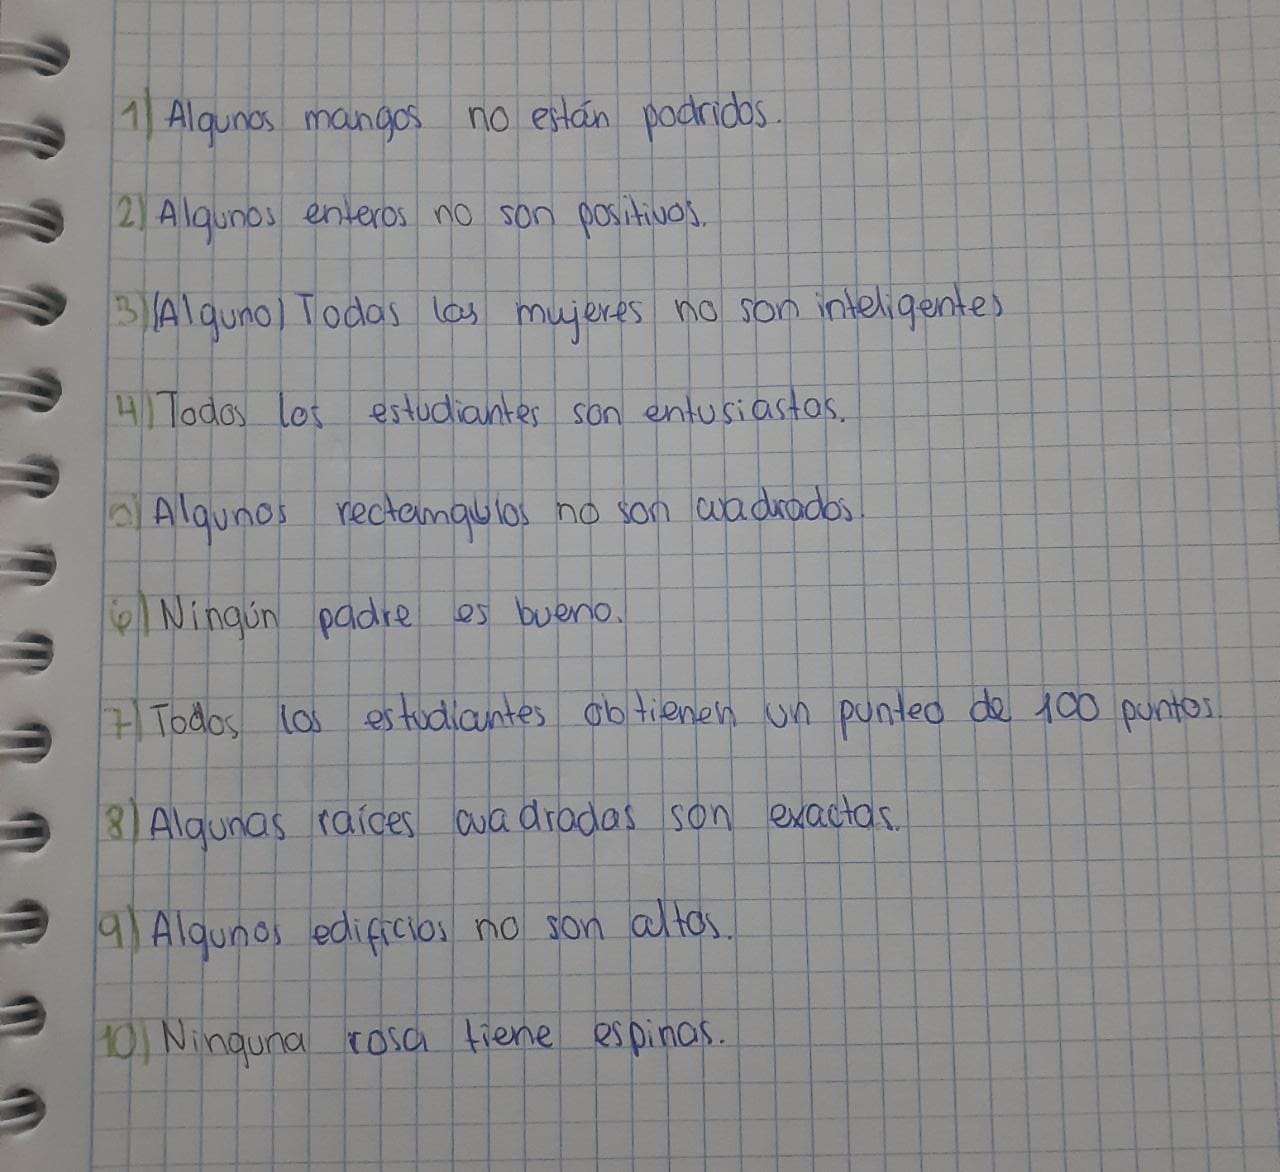 1) Algunos mangos no están podridos.
2) Algunos enteros no son positivos.
3) (Alguno) Todas las mujeres no son inteligentes
4) Todos los estudiantes son entusiastas.
5) Algunos rectangulos no son cuadrados.
6) Ningún padre es bueno.
7) Todos los estudiantes obtienen un punteo de 100 puntos.
8) Algunas raíces cuadradas son exactas.
9) Algunos edificios no son altos.
10) Ninguna rosa tiene espinas.